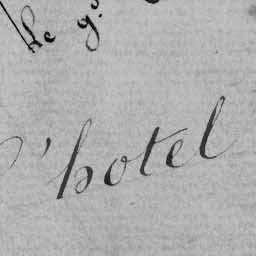 le g.d
'hotel